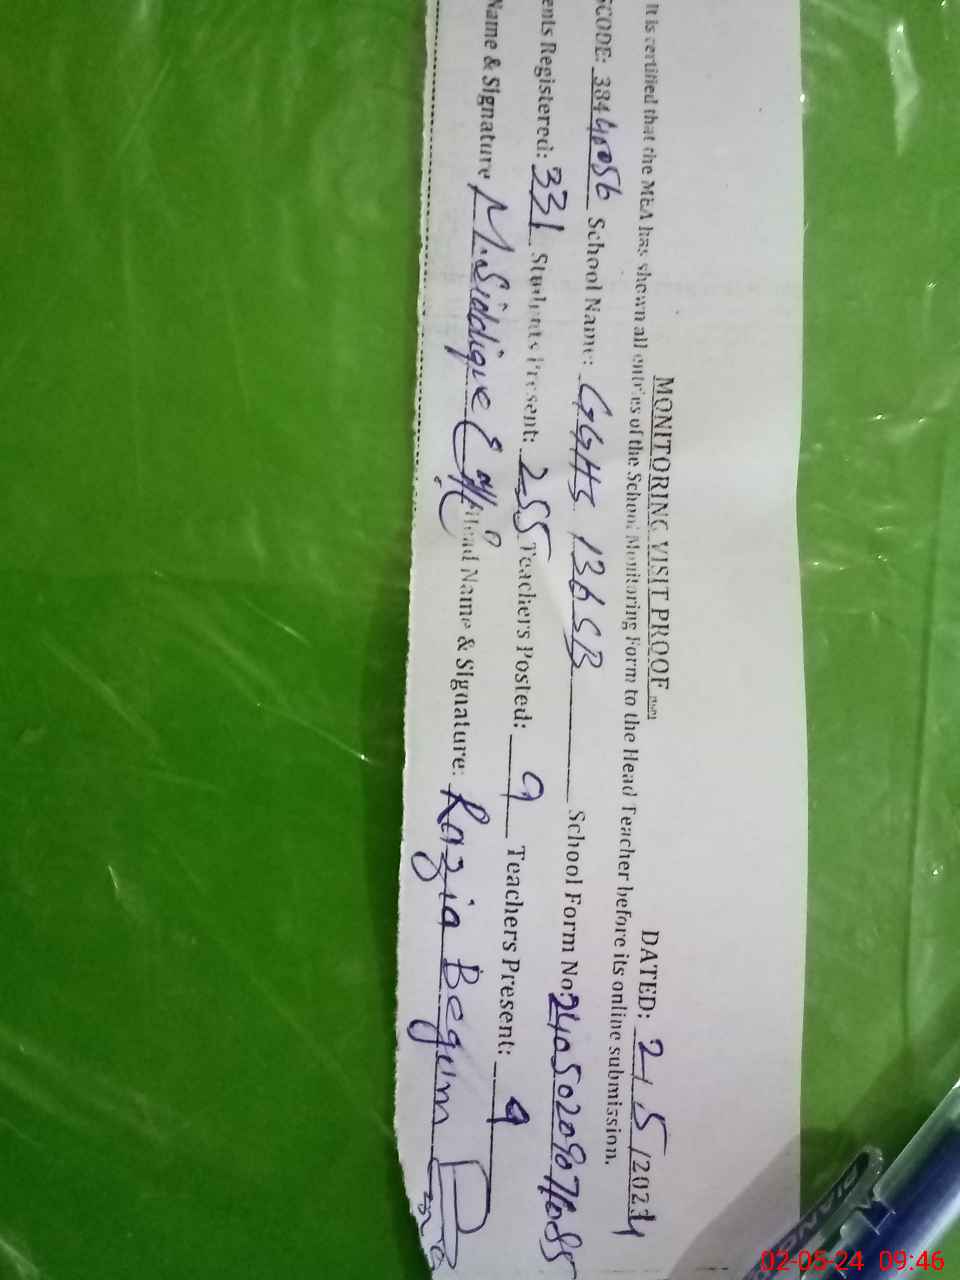 MONITORING VISIT PROOF
DATED: 2/5/2024
It is certified that the MEA has shown all entries of the School Monitoring Form to the Head Teacher before its online submission.
CODE: 38440056 School Name: GGHS 136 SB School Form No: 2405020907
ents Registered: 331 Students Present: 255 Teachers Posted: 9 Teachers Present: 9
Name & Signature M.Siddique Head Name & Signature: Razia Begum
02-05-24 09:46